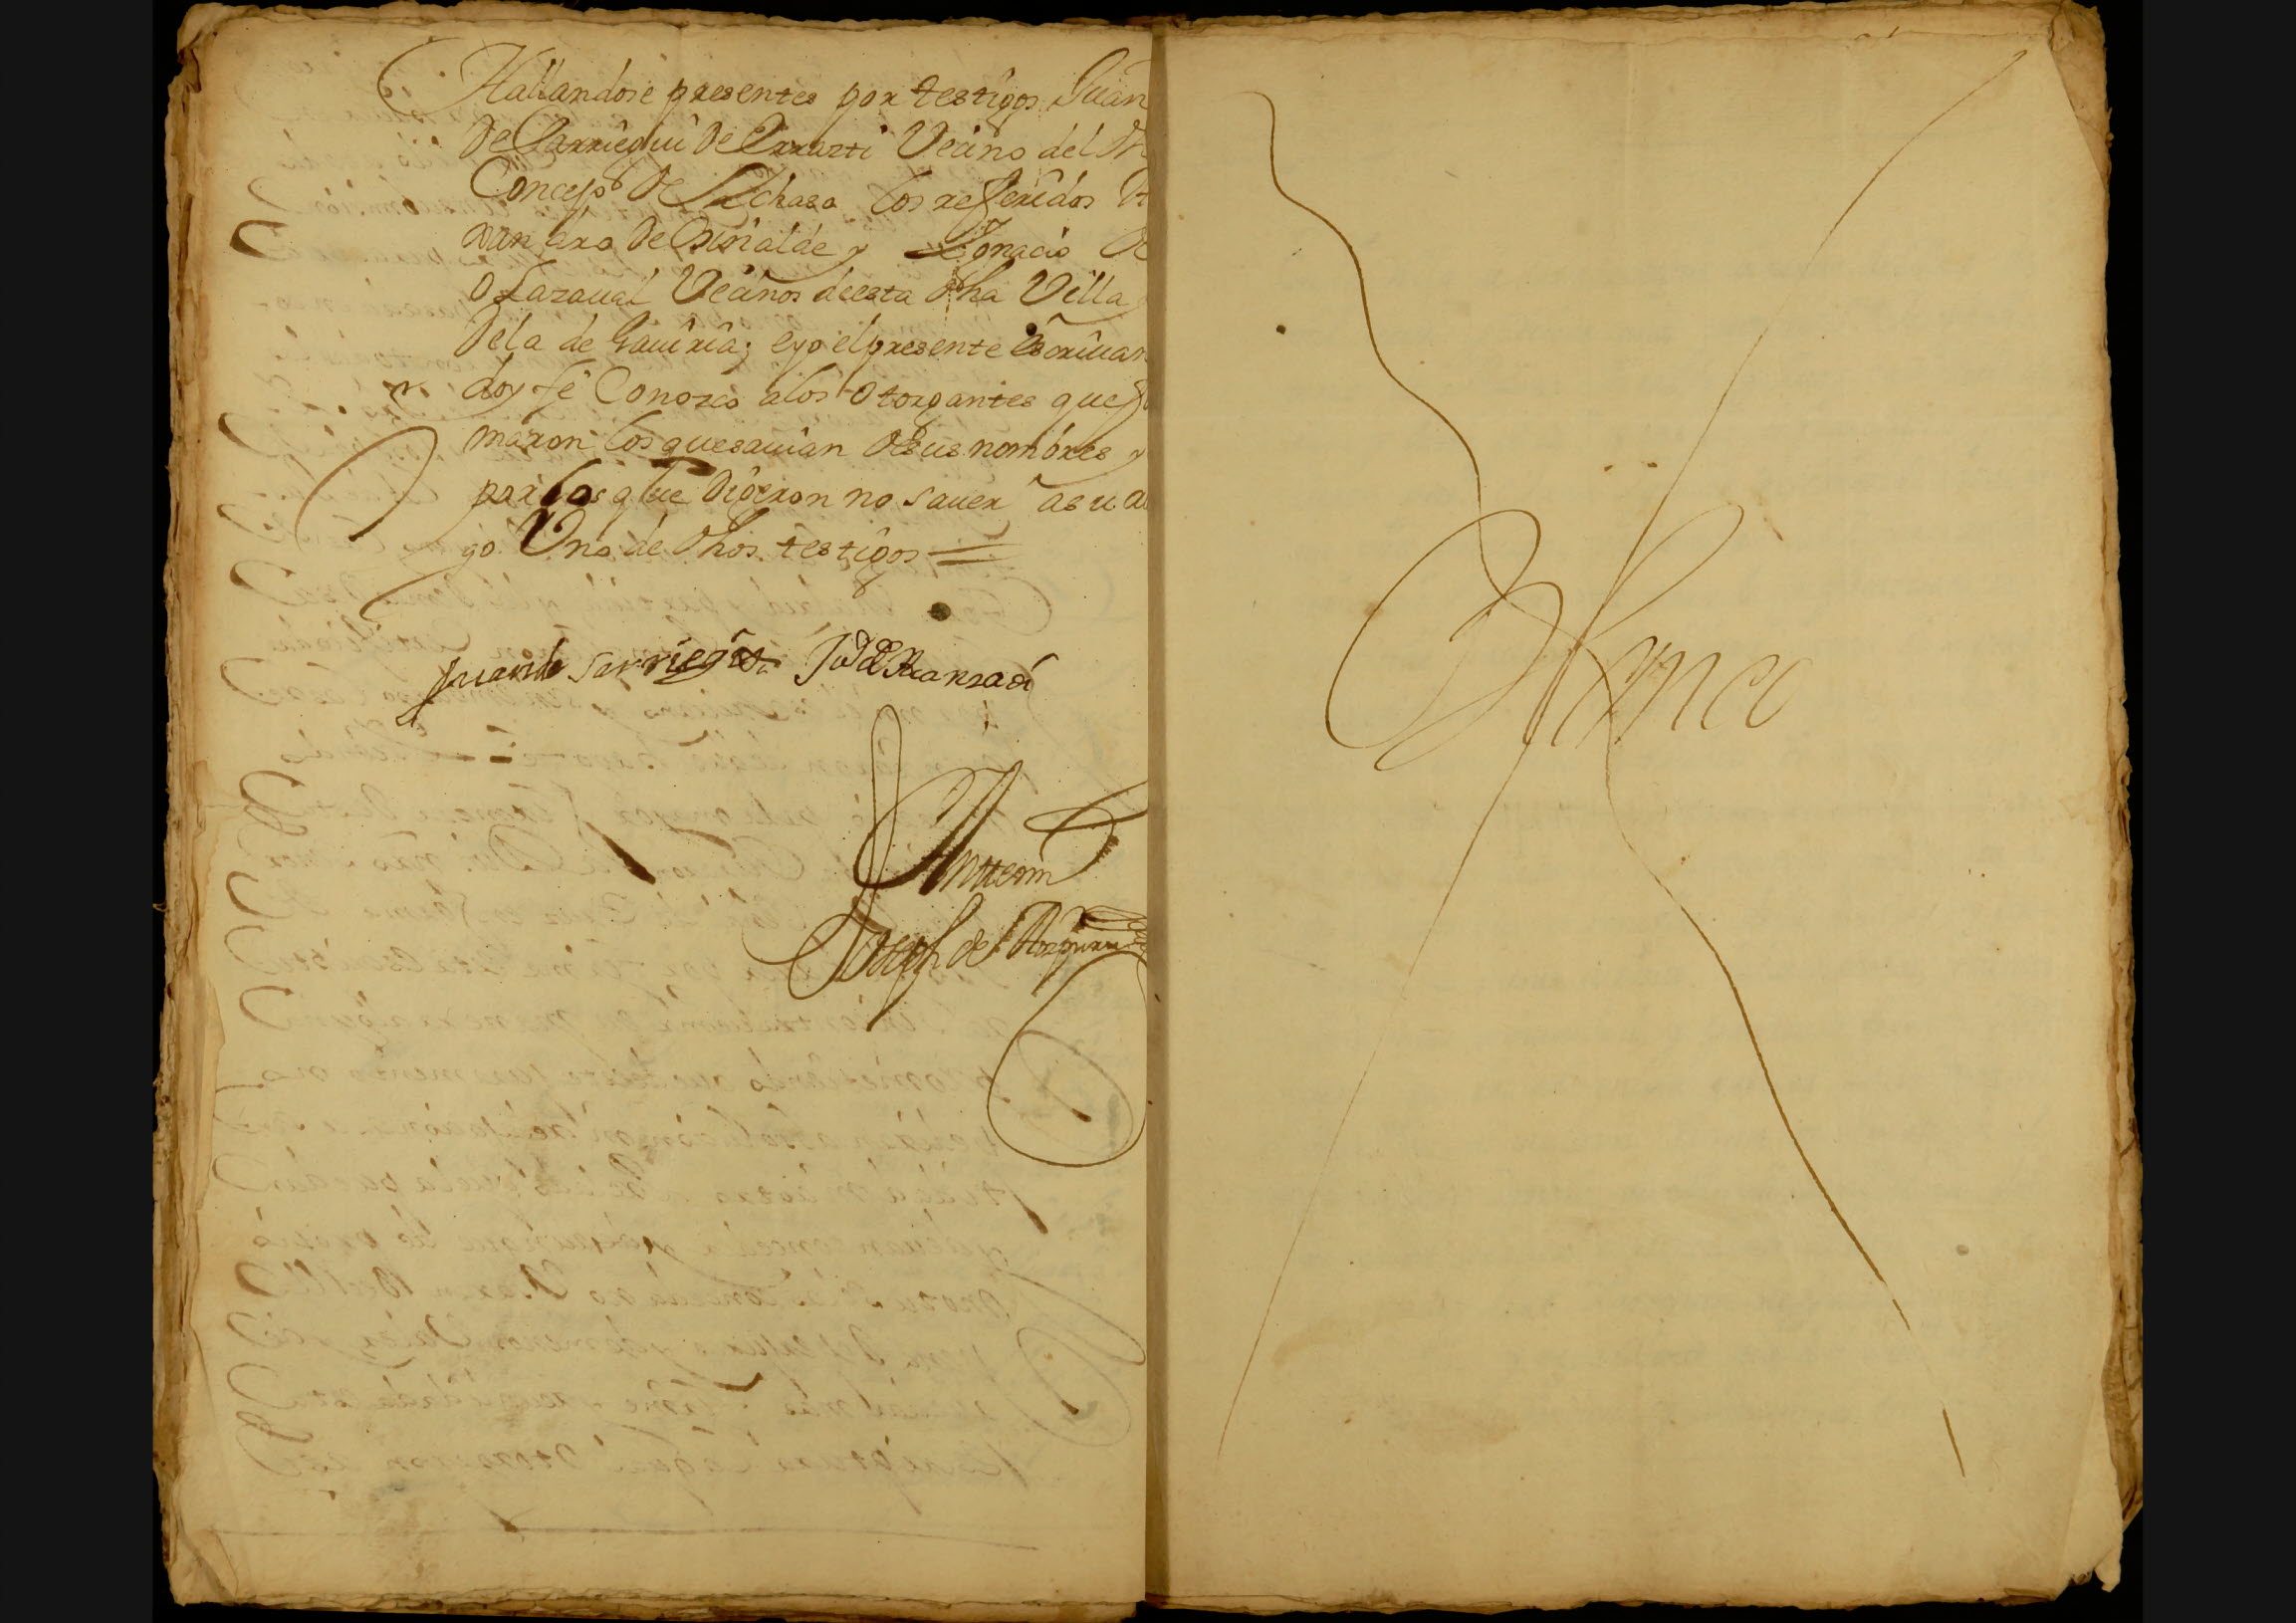 Hallandose presentes por testigos Juan
de Sarriegui de Errazti Vecino del dh
Concejo de Lachasa los referidos
de y Ignacio de
Olazaual Vecinos deesta dha Villa
Dela de Gauiria; eyo elpresente escriuan
doy fe Conozco alos otorgantes que fi
maron los quesauian desus nombres y
por los que digeron no sauer asu
go Uno de dhos testigos =
Juande Sarriegui
Antemi
Joseph de
Blanco